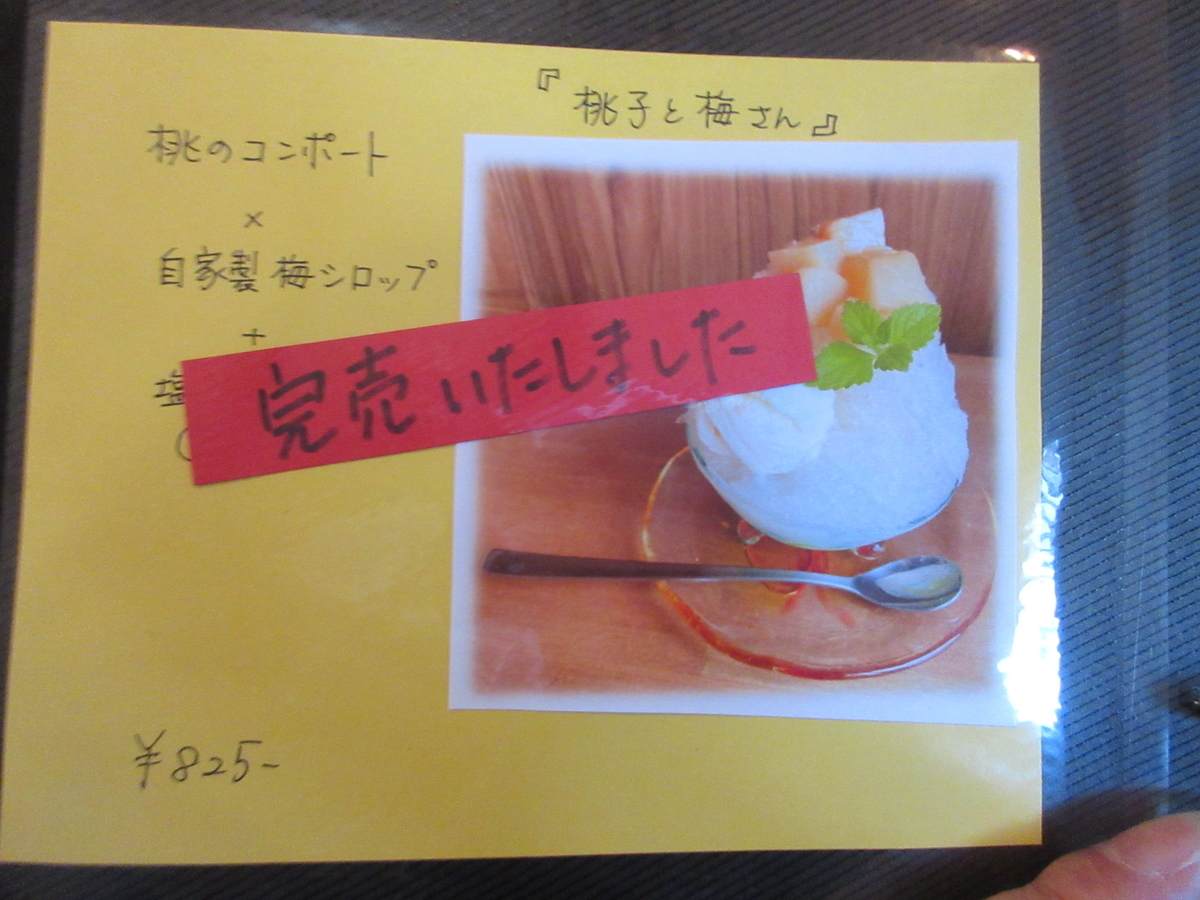 『桃子と梅さん』
桃のコンポート
×
自家製梅シロップ
+
塩
完売いたしました
¥825-